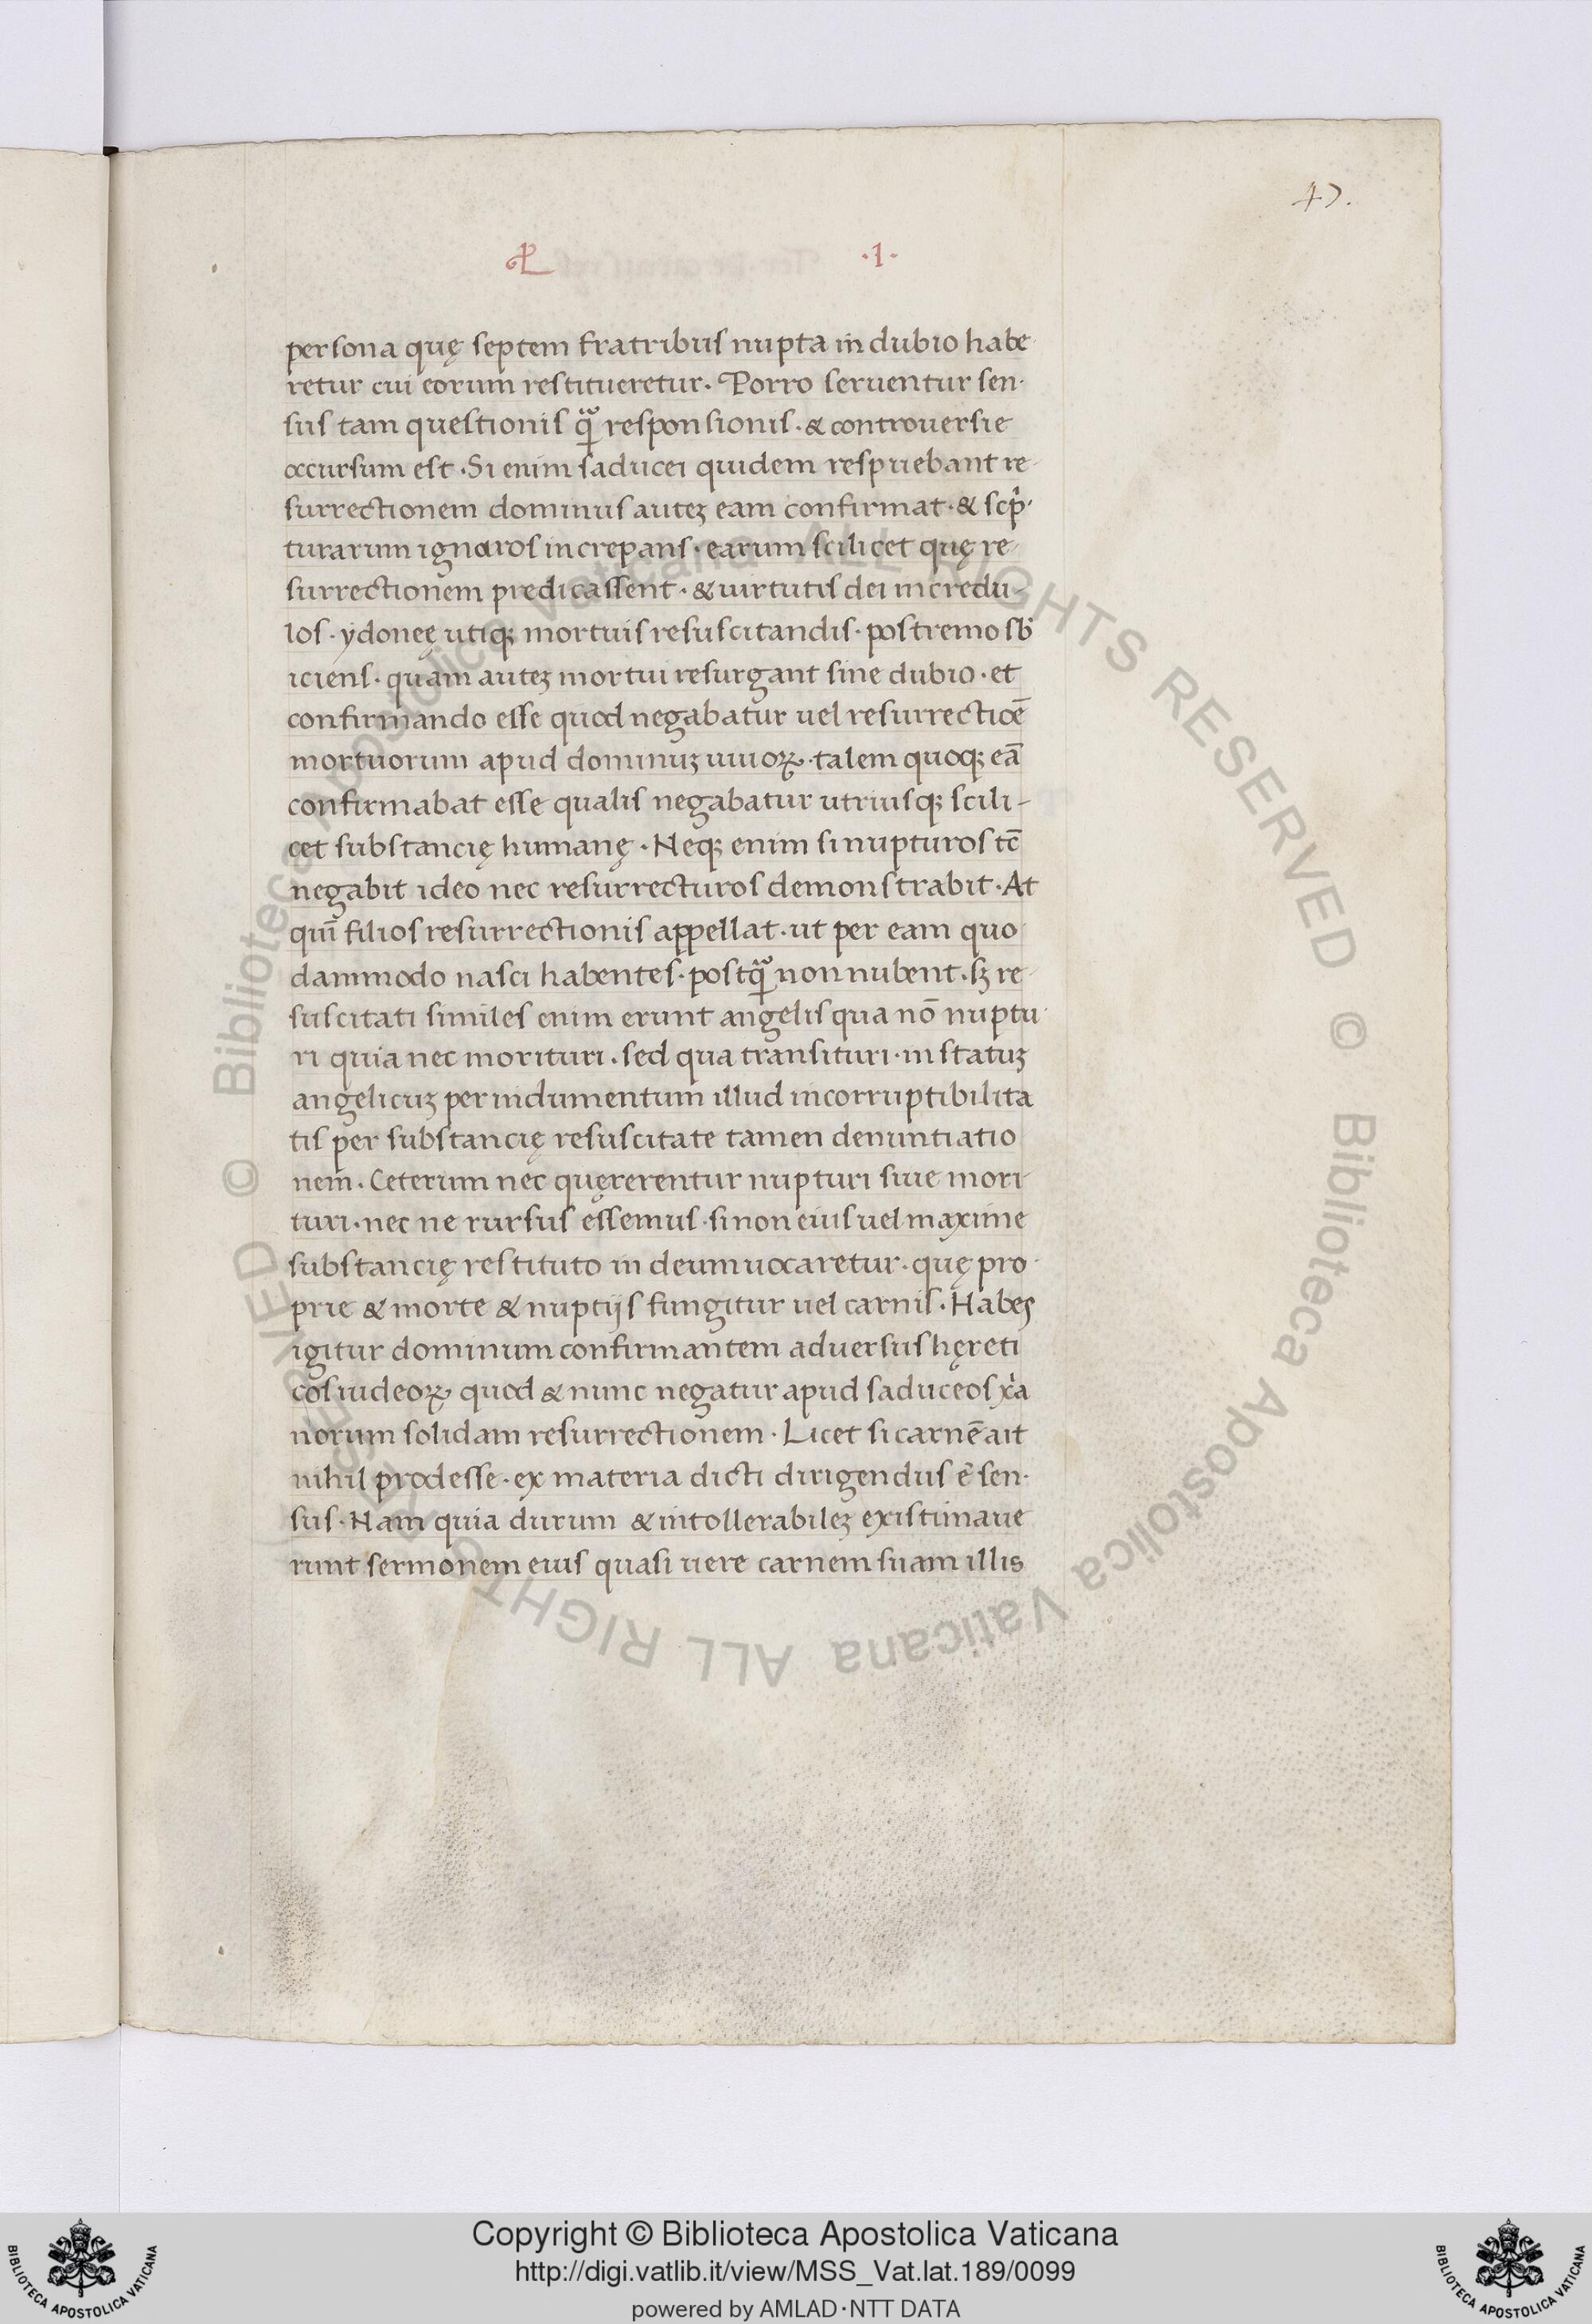 47.
PL ·1·
persona quę septem fratribus nupta in dubio habe
retur cui eorum restitueretur. Porro seruentur sen-
sus tam questionis q̃ responsionis. & controuersie
occursum est. Si enim saducei quidem respuebant re-
surrectionem dominus auteꝫ eam confirmat. & scp̃-
turarum ignaros increpans. earum scilicet quę re-
surrectionem predicassent. & uirtutis dei incredu-
los. ydoneę utiqꝫ mortuis resuscitandis. postremo sb
iciens. quam auteꝫ mortui resurgant sine dubio. et
confirmando esse quod negabatur uel resurrectiōē
mortuorum apud dominuꝫ uiuoꝝ. talem quoqꝫ eā
confirmabat esse qualis negabatur utriusqꝫ scili-
cet substancię humanę. Neqꝫ enim si nupturos tc̄
negabit ideo nec resurrecturos demonstrabit. At
quī filios resurrectionis appellat. ut per eam quo
dammodo nasci habentes. postq̃ non nubent. sꝫ re-
suscitati similes enim erunt angelis qua nō nuptu
ri quia nec morituri. sed qua transituri. in statuꝫ
angelicuꝫ per indumentum illud incorruptibilita
tis per substancię resuscitate tamen denuntiatio
nem. Ceterum nec quęrerentur nupturi siue mori-
turi. nec ne rursus essemus. si non eius uel maxime
substancię restituto in deum uocaretur. quę pro-
prie & morte & nuptijs fungitur uel carnis. Habes
igitur dominum confirmantem aduersus hęreti
cos iudeoꝝ quod & nunc negatur apud saduceos xr̃a
norum solidam resurrectionem. Licet si carnē ait
nihil prodesse. ex materia dicti dirigendus ē sen-
sus. Nam quia durum & intollerabileꝫ existimaue
runt sermonem eius quasi uere carnem suam illis
© Biblioteca Apostolica Vaticana ALL RIGHTS RESERVED
© Biblioteca Apostolica Vaticana ALL RIGHTS RESERVED
Copyright © Biblioteca Apostolica Vaticana
http://digi.vatlib.it/view/MSS_Vat.lat.189/0099
powered by AMLAD·NTT DATA
BIBLIOTECA APOSTOLICA VATICANA
BIBLIOTECA APOSTOLICA VATICANA